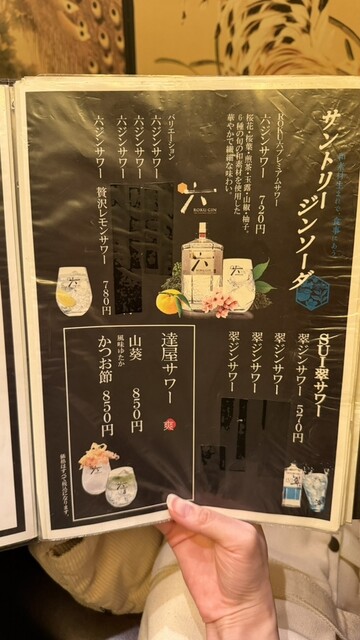 サントリー ジンソーダ
ROKU六プレミアムサワー
六ジンサワー 720円
桜花・桜葉・煎茶・玉露・山椒・柚子、
6種の旬の和素材を使用した
華やかで繊細な味わい。
バリエーション
六ジンサワー
六ジンサワー
六ジンサワー
六ジンサワー 贅沢レモンサワー 780円
六
ROKU GIN
SUI 翠サワー
翠ジンサワー 570円
翠ジンサワー
翠ジンサワー
翠ジンサワー
達屋サワー
山葵 850円
風味ゆたか
かつお節 850円
価格はすべて税込になります。